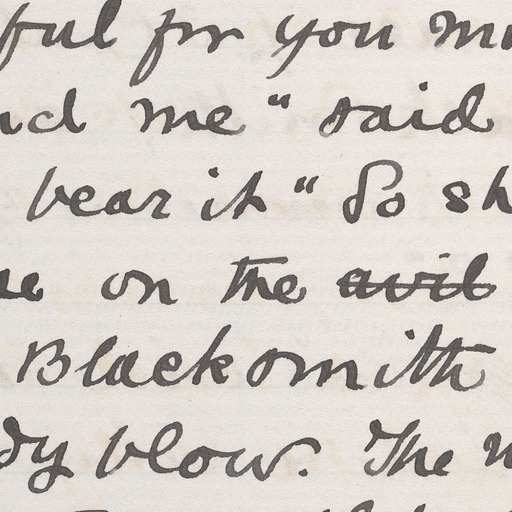 ful for you
me" said
bear it" So sh
on the avil
Blacksmith
blow. The